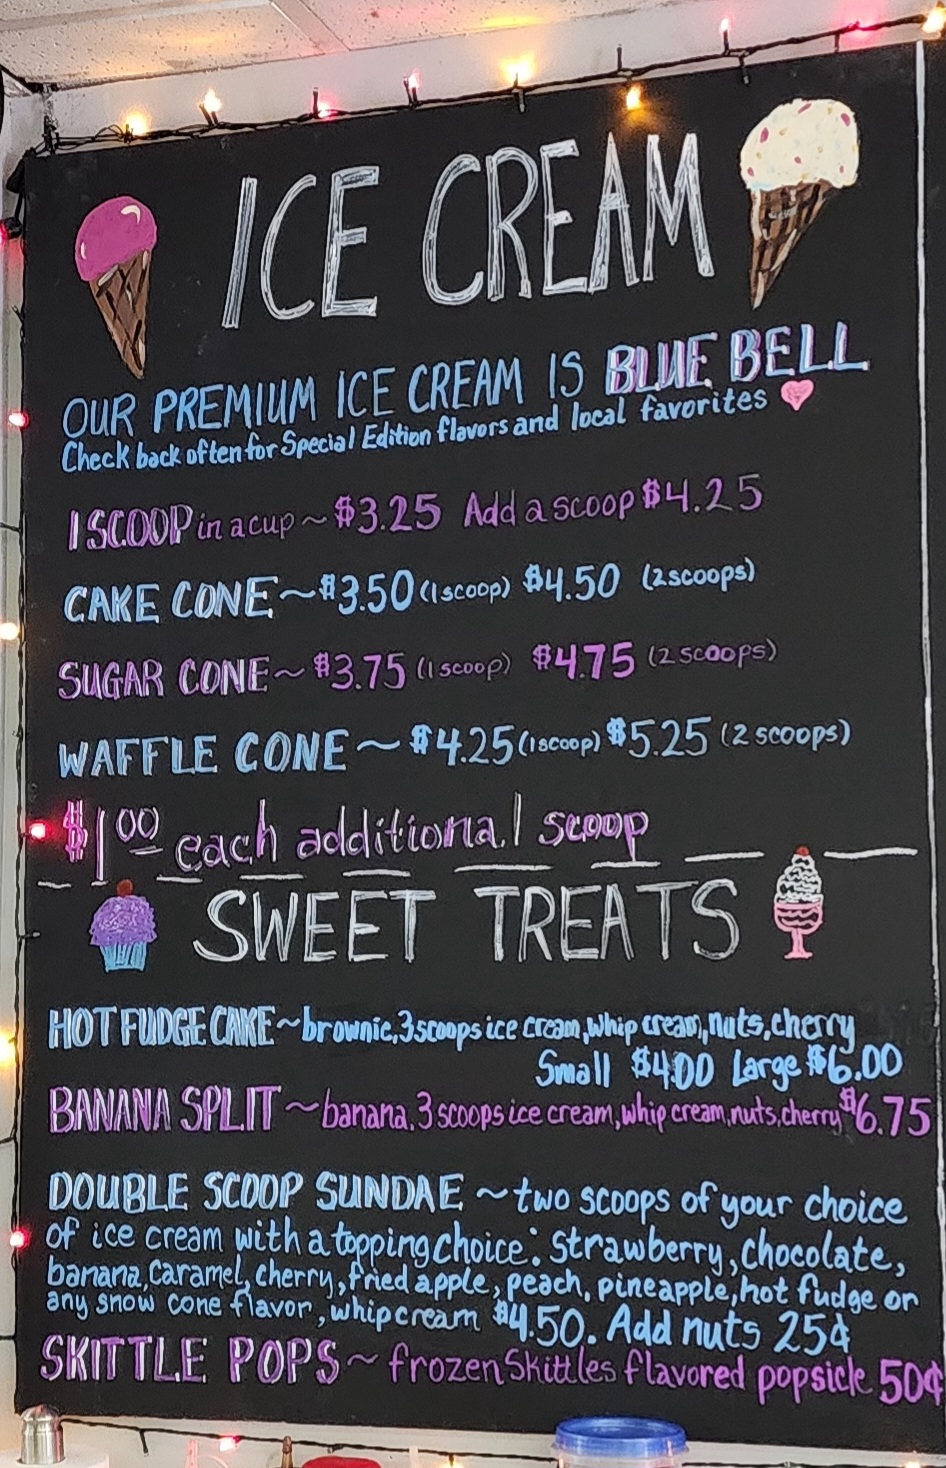 ICE CREAM
OUR PREMIUM ICE CREAM IS BLUE BELL
Check back often for Special Edition flavors and local favorites
1 SCOOP in a cup ~ $3.25 Add a scoop $4.25
CAKE CONE ~ $3.50 (1 scoop) $4.50 (2 scoops)
SUGAR CONE ~ $3.75 (1 scoop) $4.75 (2 scoops)
WAFFLE CONE ~ $4.25 (1 scoop) $5.25 (2 scoops)
$1.00 each additional scoop
SWEET TREATS
HOT FUDGE CAKE ~ brownie, 3 scoops ice cream, whip cream, nuts, cherry
Small $4.00 Large $6.00
BANANA SPLIT ~ banana, 3 scoops ice cream, whip cream, nuts, cherry $6.75
DOUBLE SCOOP SUNDAE ~ two scoops of your choice
of ice cream with a topping choice: strawberry, chocolate,
banana, caramel, cherry, fried apple, peach, pineapple, hot fudge or
any snow cone flavor, whip cream $4.50. Add nuts 25¢
SKITTLE POPS ~ frozen Skittles flavored popsicle 50¢